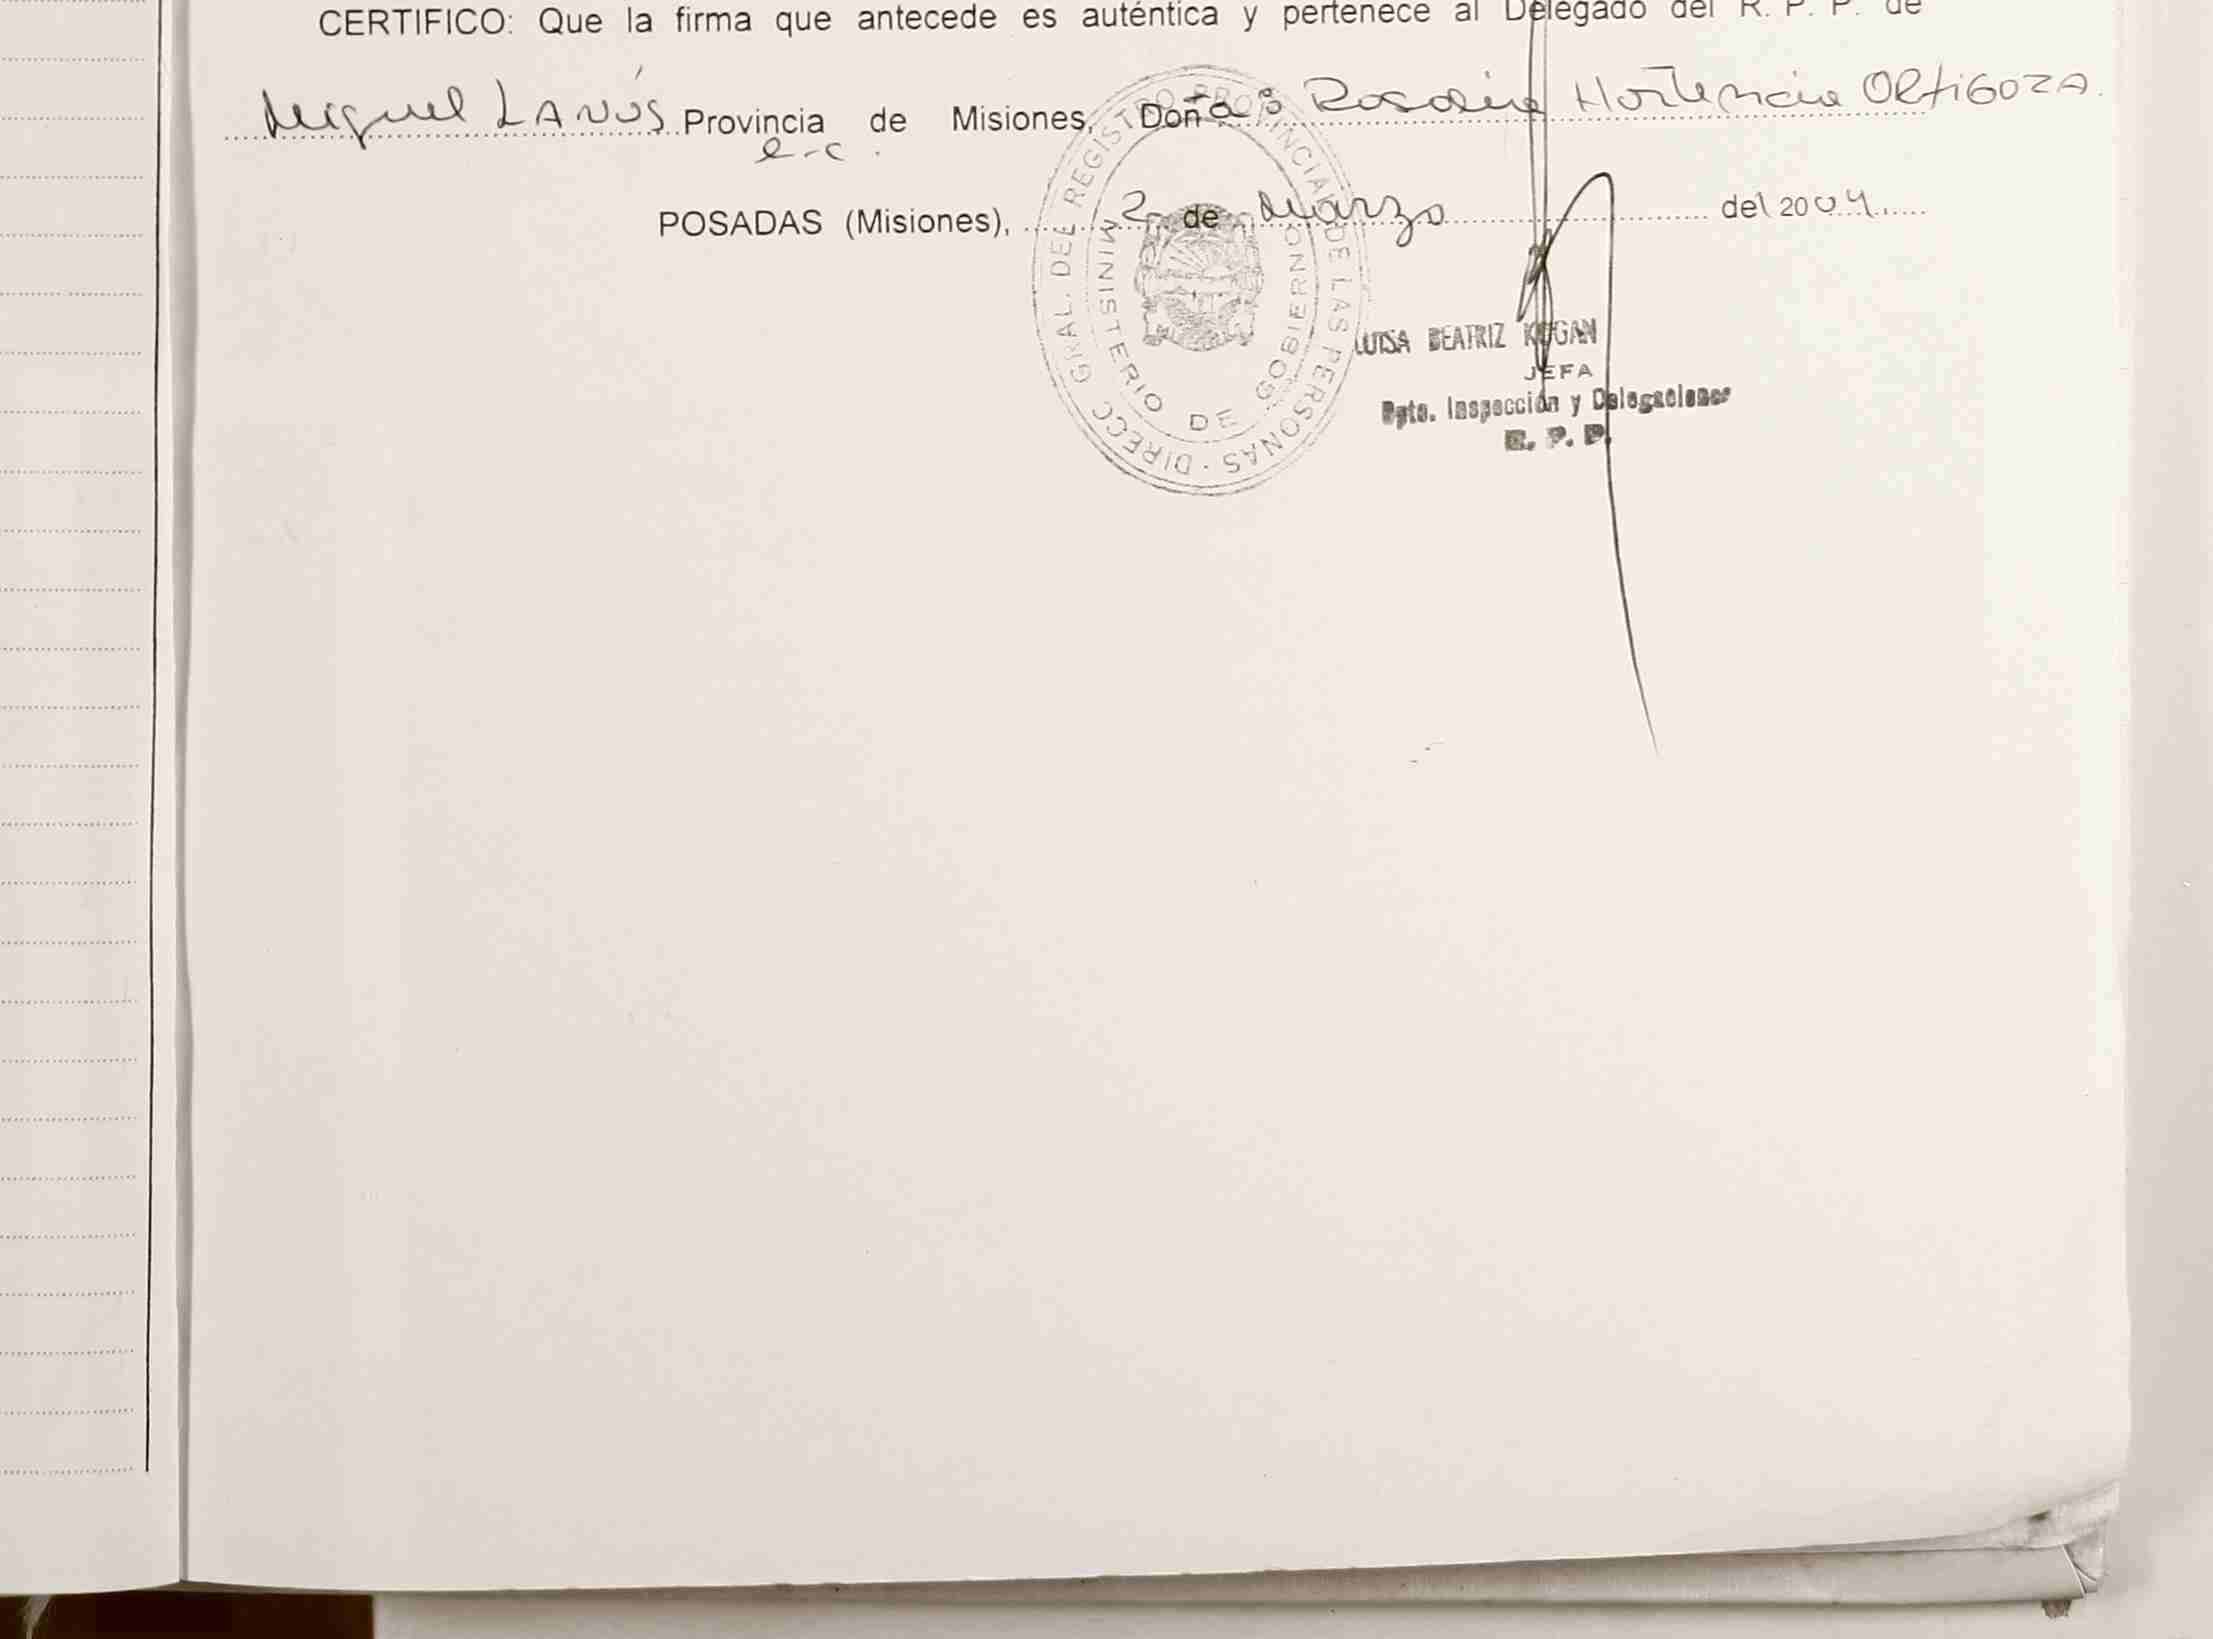 CERTIFICO: Que la firma que antecede es auténtica y pertenece al Delegado del R. P. P. de
Miguel LANÚS Provincia de Misiones, Doña Rosalina Hortencia ORTIGOZA.
e-c.
POSADAS (Misiones), 2 de Marzo del 2004
DIRECC. GRAL. DEL REGISTRO PROVINCIAL DE LAS PERSONAS
MINISTERIO DE GOBIERNO
LUISA BEATRIZ KOGAN
JEFA
Dpto. Inspección y Delegaciones
R. P. P.